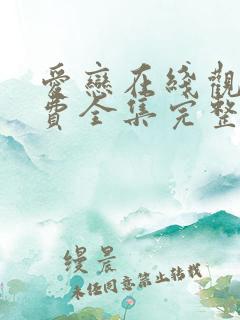 爱恋在线观
费全集完整
缦晨
未经同意禁止转载